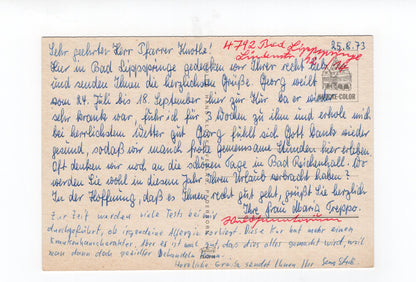 Sehr geehrter Herr Pfarrer
4792 Bad Lippspringe
25.8.73
Hier in Bad Lippspringe gedenken wir Ihrer recht
und senden Ihnen die herzlichsten Grüße. Georg weilt
vom 24. Juli bis 18. September hier zur Kur. Da er
sehr krank war, fuhr ich für 3 Wochen zu ihm und erhole mich
bei herrlichstem Wetter gut. Georg fühlt sich Gott Dank wieder
gesund, sodaß wir manch frohe gemeinsame Stunden hier erleben.
Oft denken wir noch an die schönen Tage in Bad Reichenhall. Wo
werden Sie wohl in diesem Jahr Ihren Urlaub verbracht haben?
In der Hoffnung, daß es Ihnen recht gut geht, grüßt Sie herzlich
Ihr frau Maria Treppo.
Zur Zeit werden viele Tests bei mir
durchgeführt, ob irgendeine Allergie vorliegt. Diese Kur hat mehr einen
Krankenhauscharakter. Aber es ist mal gut, daß dies alles gemacht wird, weil
man dann doch gezielter behandeln kann.
Herzliche Grüße sendet Ihnen Ihr